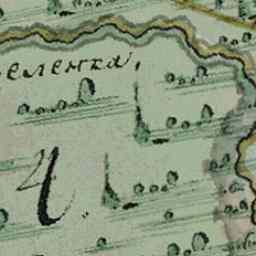 еленка,
4.